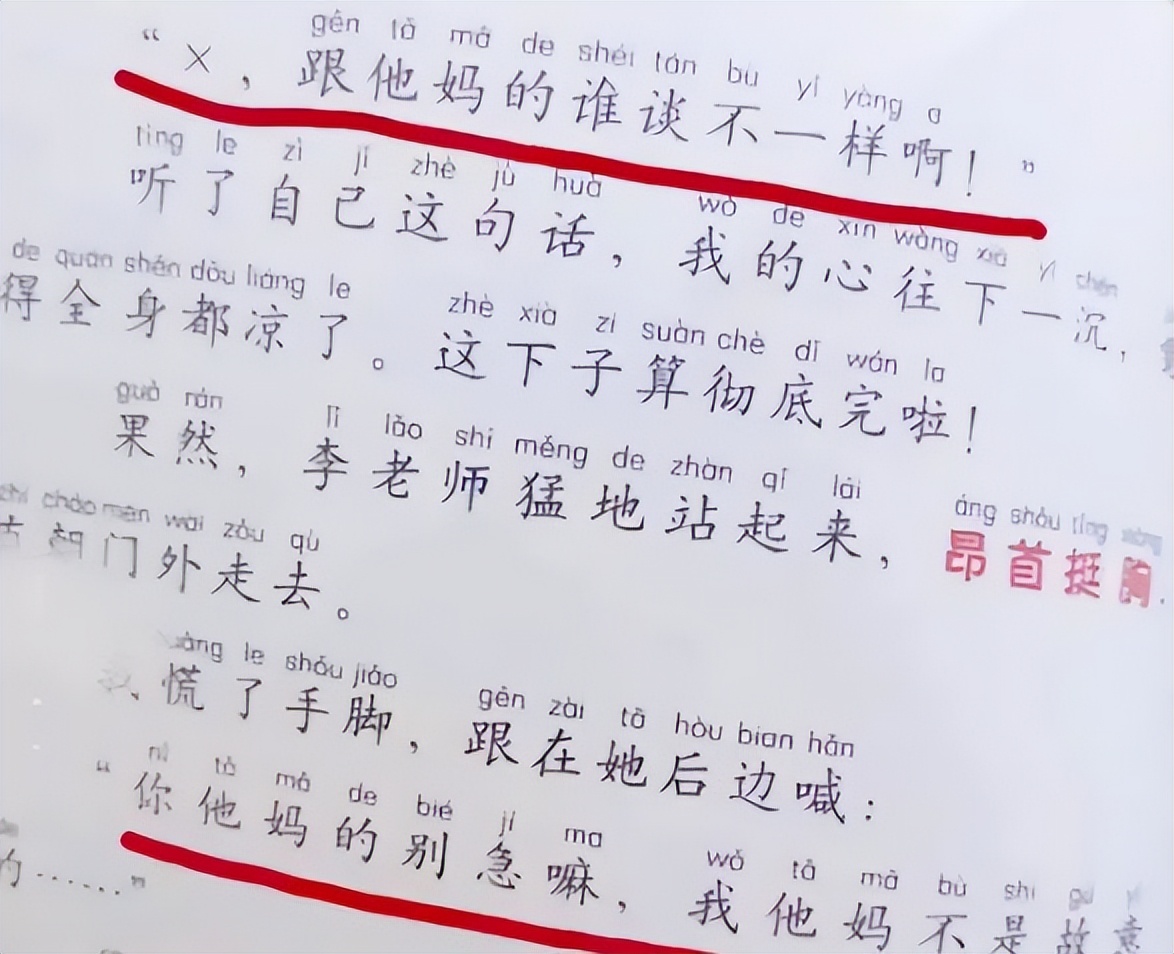 gēn tā mā de shéi tán bù yí yàng a
“×，跟他妈的谁谈不一样啊！”
tīng le zì jǐ zhè jù huà wǒ de xīn wǎng xià yì chén
听了自己这句话，我的心往下一沉，
de quán shēn dōu liáng le zhè xià zi suàn chè dǐ wán la
得全身都凉了。这下子算彻底完啦！
guǒ rán lǐ lǎo shī měng de zhàn qǐ lái áng shǒu tǐng xiōng
果然，李老师猛地站起来，昂首挺胸
cháo men wài zǒu qù
朝门外走去。
le shǒu jiǎo gēn zài tā hòu bian hǎn
慌了手脚，跟在她后边喊：
nǐ tā mā de bié jí ma wǒ tā mā bù shì gù yì
“你他妈的别急嘛，我他妈不是故意
的……”